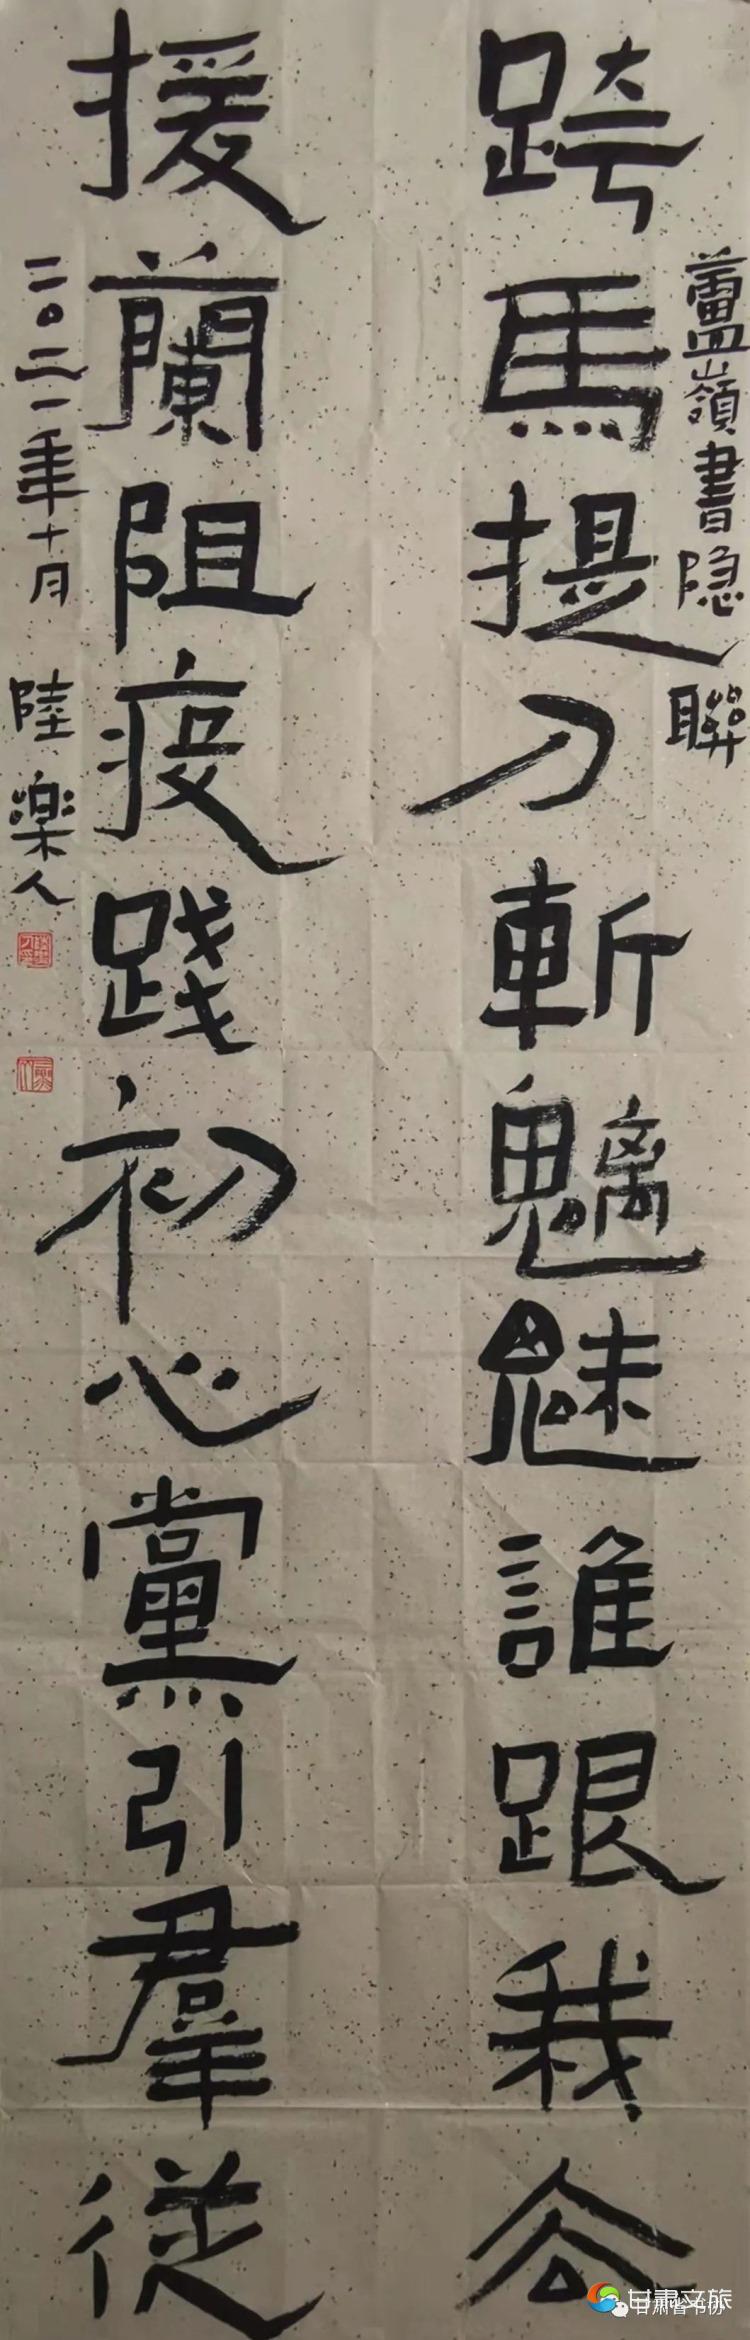 蘆嶺書隐 聯
跨馬提刀斬魑魅誰跟我去
援蘭阻疫踐初心黨引羣從
二〇二一年十月 陸楽人
甘肃文旅
甘肃省书协